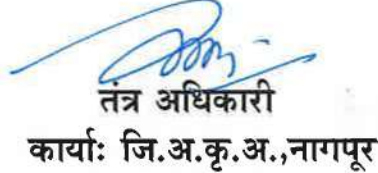 तंत्र अधिकारी
कार्याः जि.अ.कृ.अ.,नागपूर